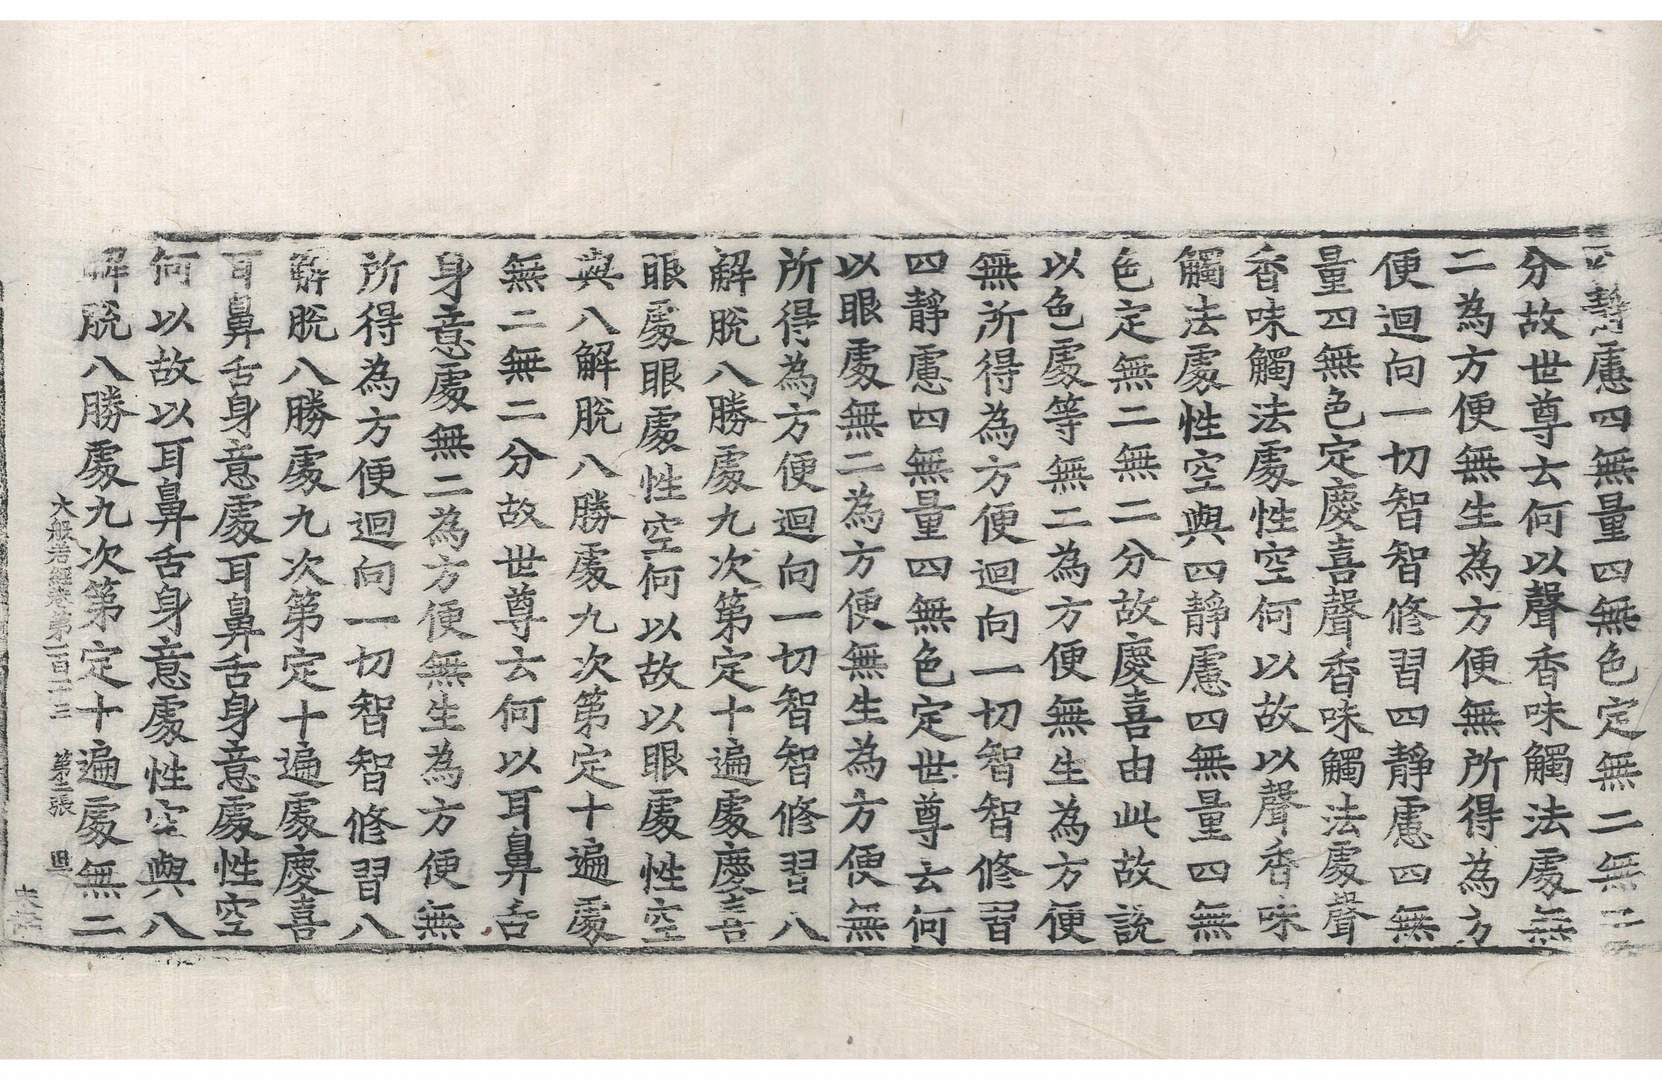 四靜慮四無量四無色定無二無二
分故世尊云何以聲香味觸法處無
二為方便無生為方便無所得為方
便迴向一切智智修習四靜慮四無
量四無色定慶喜聲香味觸法處聲
香味觸法處性空何以故以聲香味
觸法處性空與四靜慮四無量四無
色定無二無二分故慶喜由此故說
以色處等無二為方便無生為方便
無所得為方便迴向一切智智修習
四靜慮四無量四無色定世尊云何
以眼處無二為方便無生為方便無
所得為方便迴向一切智智修習八
解脫八勝處九次第定十遍處慶喜
眼處眼處性空何以故以眼處性空
與八解脫八勝處九次第定十遍處
無二無二分故世尊云何以耳鼻舌
身意處無二為方便無生為方便無
所得為方便迴向一切智智修習八
解脫八勝處九次第定十遍處慶喜
耳鼻舌身意處耳鼻舌身意處性空
何以故以耳鼻舌身意處性空與八
解脫八勝處九次第定十遍處無二
大般若經卷第一百二十三 第三張